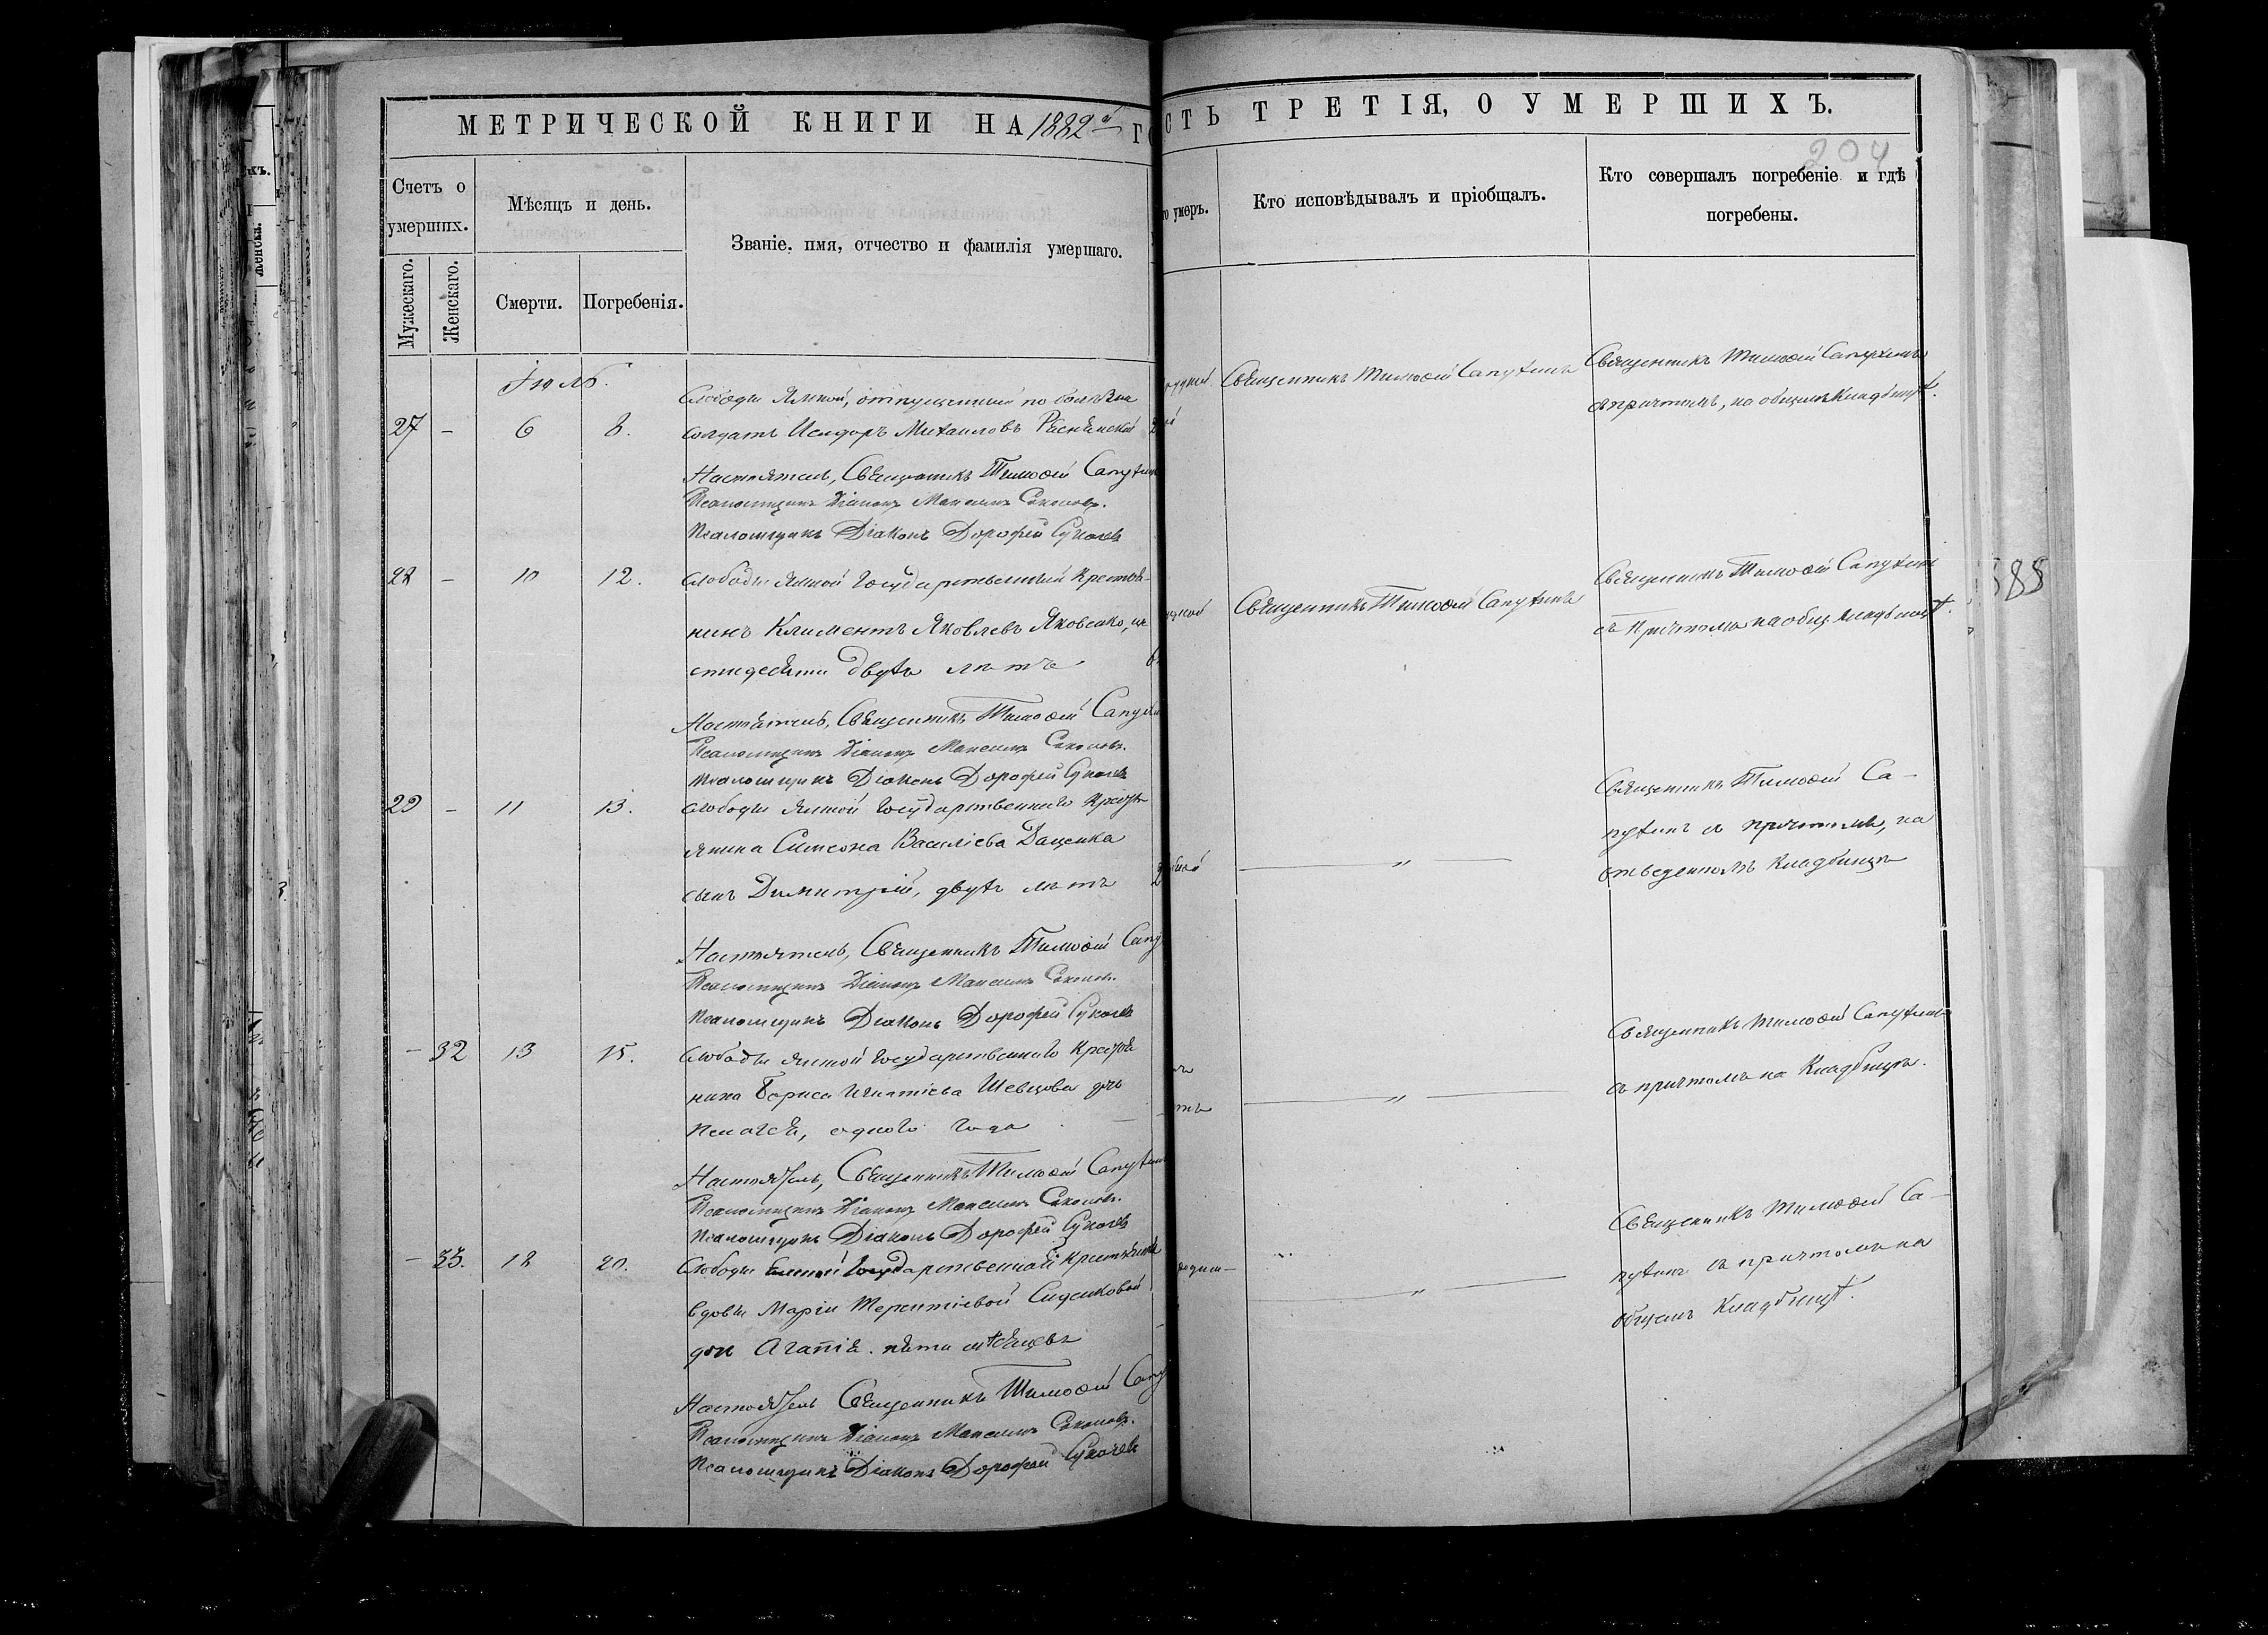 МЕТРИЧЕСКОЙ КНИГИ НА 1882й ГО
Счетъ о умершихъ.
Мѣсяцъ и день.
Званіе, имя, отчество и фамилія умершаго.
Мужескаго.
Женскаго.
Смерти.
Погребенія.
Іюль.
Слободы Ямной, отпущенный по болѣзни
27 - 6 8. солдатъ Исидоръ Михаиловъ
Настоятель, Священникъ Тимоѳей Сапухин
Псаломщикъ Діаконъ Максимъ Соколовъ.
Псаломщикъ Діаконъ Дорофей Сукачев
28 - 10 12. Слободы Ямной Государственный крестья-
нинъ Климентъ Яковлевъ Яковенко, ше
стидесяти двухъ лѣтъ
Настоятель, Священникъ Тимоѳей Сапухи
Псаломщикъ Діаконъ Максимъ Соколовъ.
Псаломщикъ Діаконъ Дорофей Сукачев
29 - 11 13. Слободы Ямной Государственнаго Кресть
янина Симеона Василіева Даценка
сынъ Димитрій, двухъ лѣтъ
Настоятель, Священникъ Тимоѳей Сапу
Псаломщикъ Діаконъ Максимъ Соколовъ.
Псаломщикъ Діаконъ Дорофей Сукачев
- 32 13 15. Слободы Ямной Государственнаго Крестья
нина Бориса Игнатіева Шевцова дочь
Пелагея, одного года
Настоятель, Священникъ Тимоѳей Сапухин
Псаломщикъ Діаконъ Максимъ Соколовъ.
Псаломщикъ Діаконъ Дорофей Сукачев
- 33. 18 20. Слободы Ямной Государственной Крестьянки
вдовы Маріи Терентіевой Сиденковой
дочь Агапія. пяти мѣсяцевъ
Настоятель Священникъ Тимоѳей Сапу
Псаломщикъ Діаконъ Максимъ Соколовъ.
Псаломщикъ Діаконъ Дорофей Сукачев
СТЬ ТРЕТІЯ, О УМЕРШИХЪ.
204
го умеръ.
Кто исповѣдывалъ и пріобщалъ.
Кто совершалъ погребеніе и гдѣ погребены.
Священникъ Тимоѳей Сапухинъ
Священникъ Тимоѳей Сапухинъ
съ причтомъ, на общемъ Кладбищѣ.
Священникъ Тимоѳей Сапухинъ
Священникъ Тимоѳей Сапухинъ
съ Причтомъ на общ. кладбищѣ.
Священникъ Тимоѳей Са-
пухинъ съ причтомъ, на
отведенномъ Кладбищѣ
Священникъ Тимоѳей Сапухинъ
съ причтомъ на Кладбищѣ.
Священникъ Тимоѳей Са-
пухинъ съ причтомъ на
общемъ Кладбищѣ.